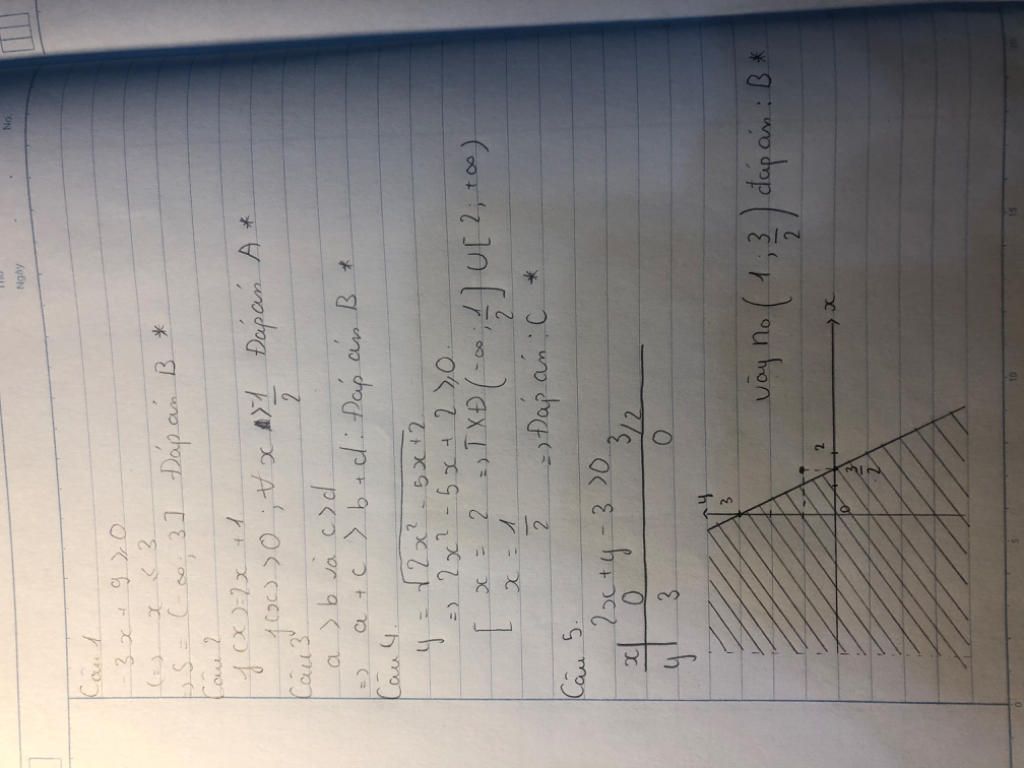 No.
Ngày
Câu 1
-3x + 9 ≥ 0
(=) x ≤ 3
=> S = (-∞; 3] Đáp án B *
Câu 2
f(x) = 2x + 1
f(x) > 0 ; ∀x > 1/2 Đáp án A *
Câu 3
a > b và c > d
=> a + c > b + d : Đáp án B *
Câu 4.
y = √(2x² - 5x + 2)
=> 2x² - 5x + 2 ≥ 0
[ x = 2 => TXĐ (-∞; 1/2] ∪ [2; +∞)
x = 1/2 => Đáp án : C *
Câu 5.
2x + y - 3 > 0
x | 0 3/2
y | 3 0
y
3
2
0
3/2
x
vậy no (1; 3/2) đáp án : B *
0 5 10 15 20